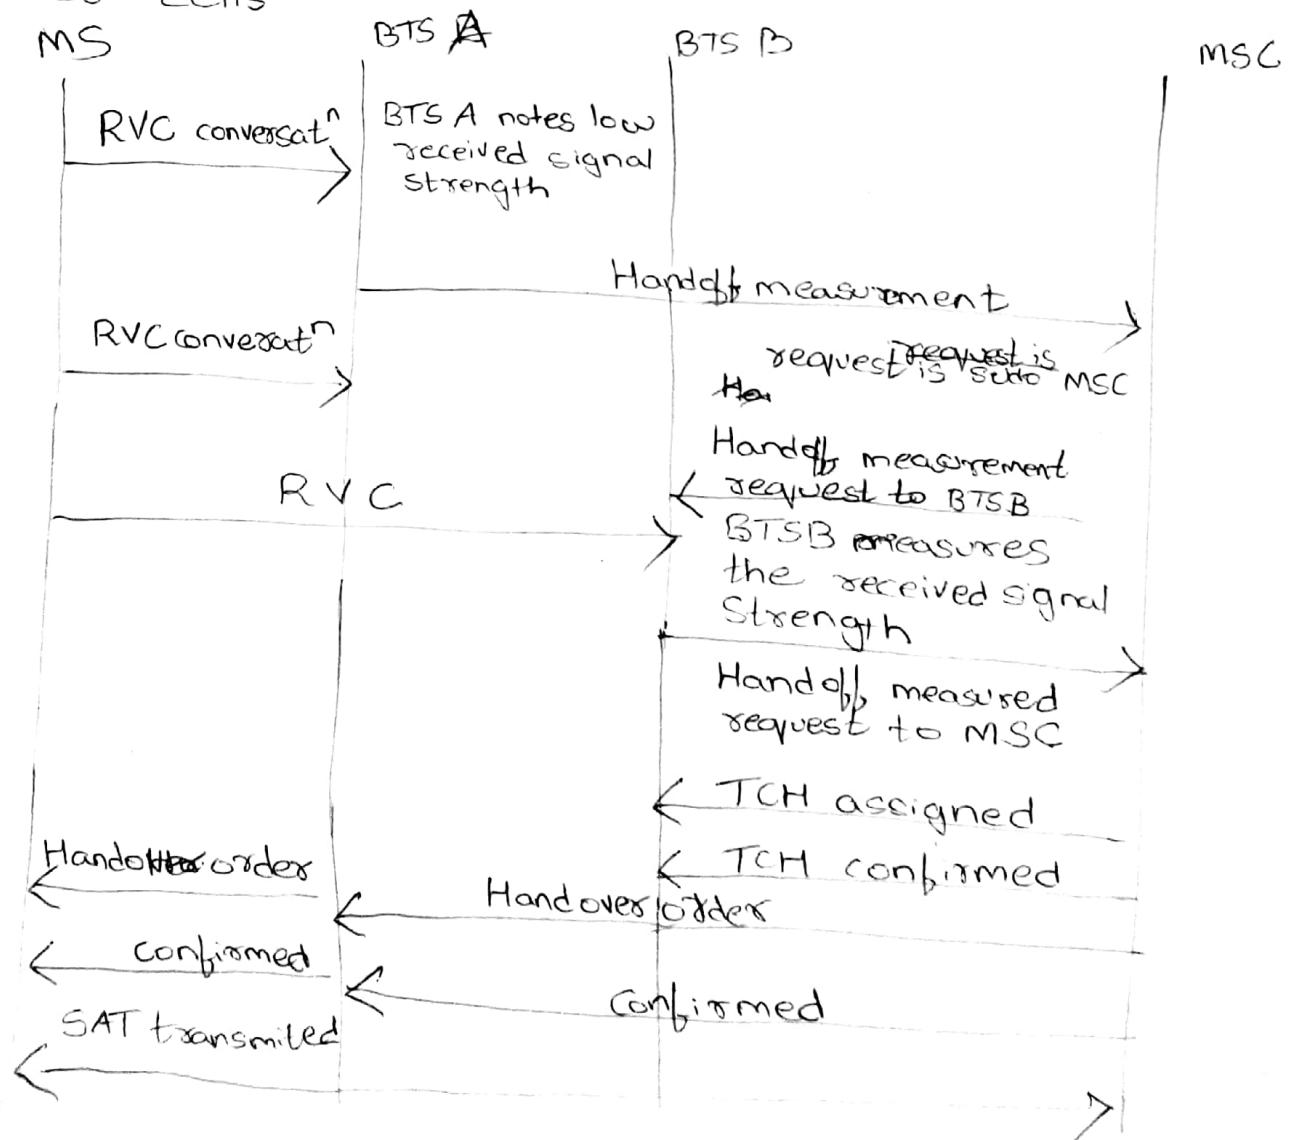 MS
BTS A
BTS B
MSC
RVC conversatⁿ
BTS A notes low
received signal
strength
Handoff measurement
RVC converatⁿ
request is MSC
Handoff measurement
request to BTSB
RVC
BTSB measures
the received signal
Strength
Handoff measured
request to MSC
TCH assigned
TCH confirmed
order
Handover order
Confirmed
Confirmed
SAT transmited